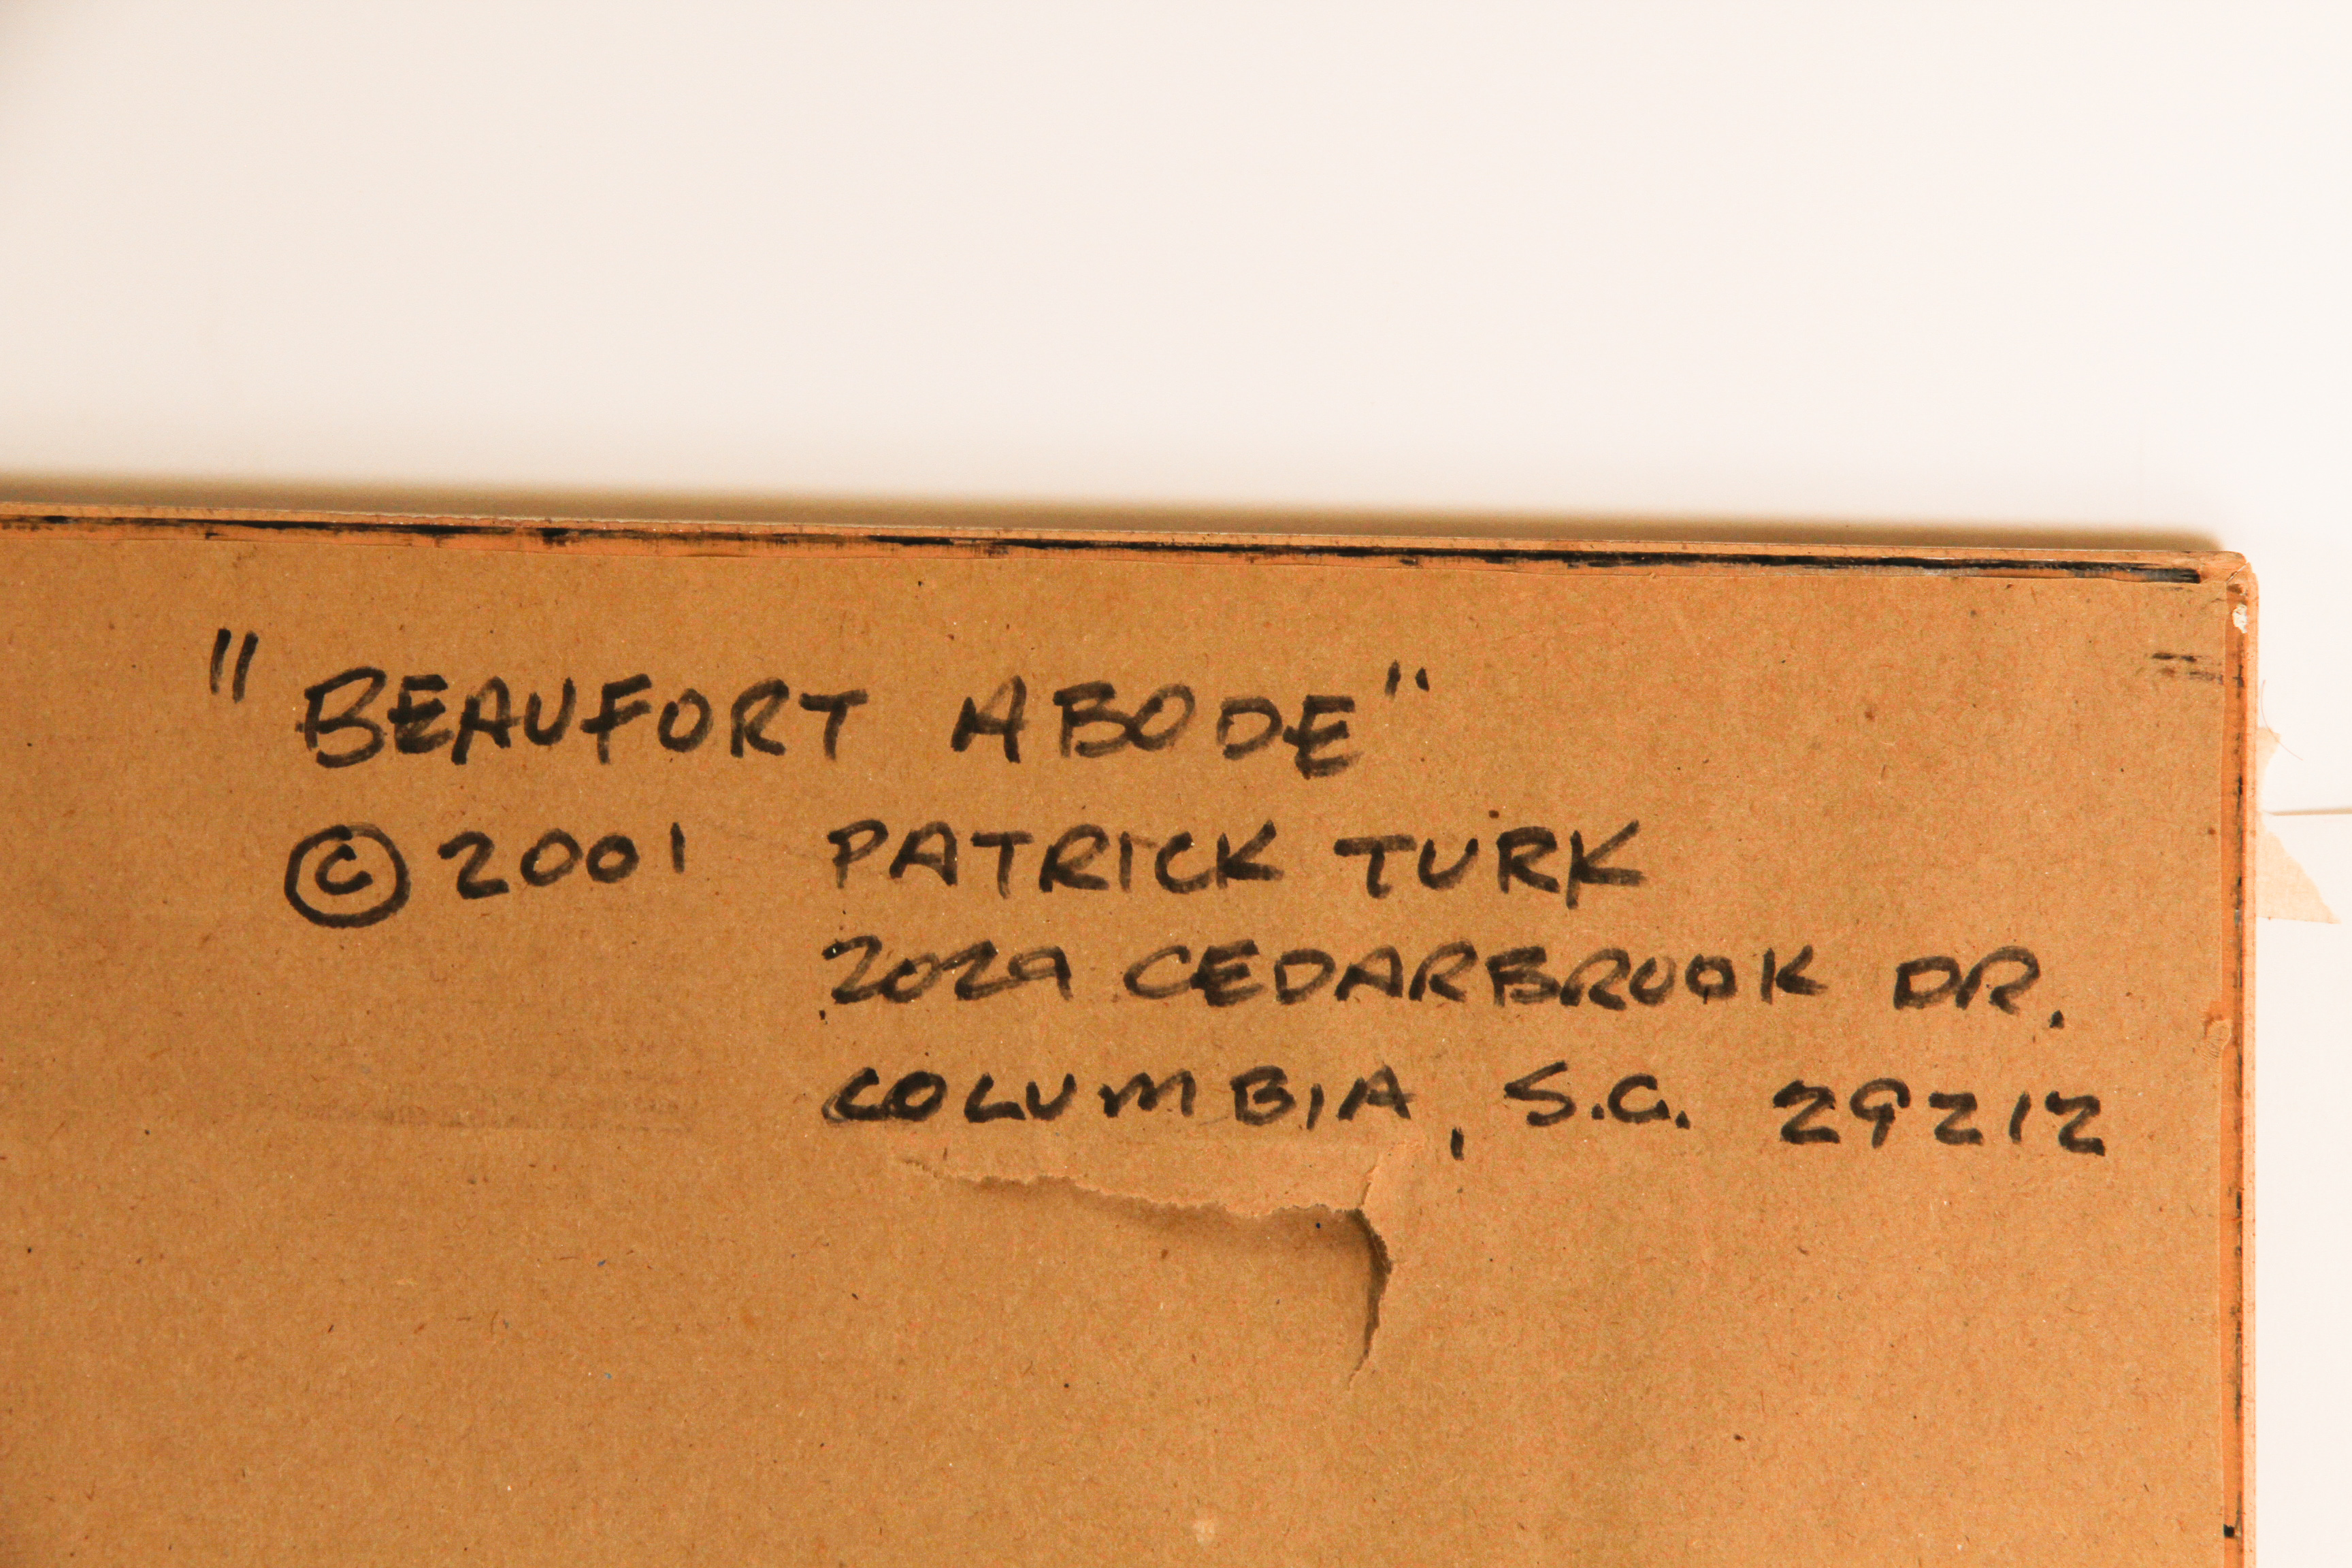 "BEAUFORT ABODE"
© 2001 PATRICK TURK
2029 CEDARBROOK DR.
COLUMBIA, S.C. 29212